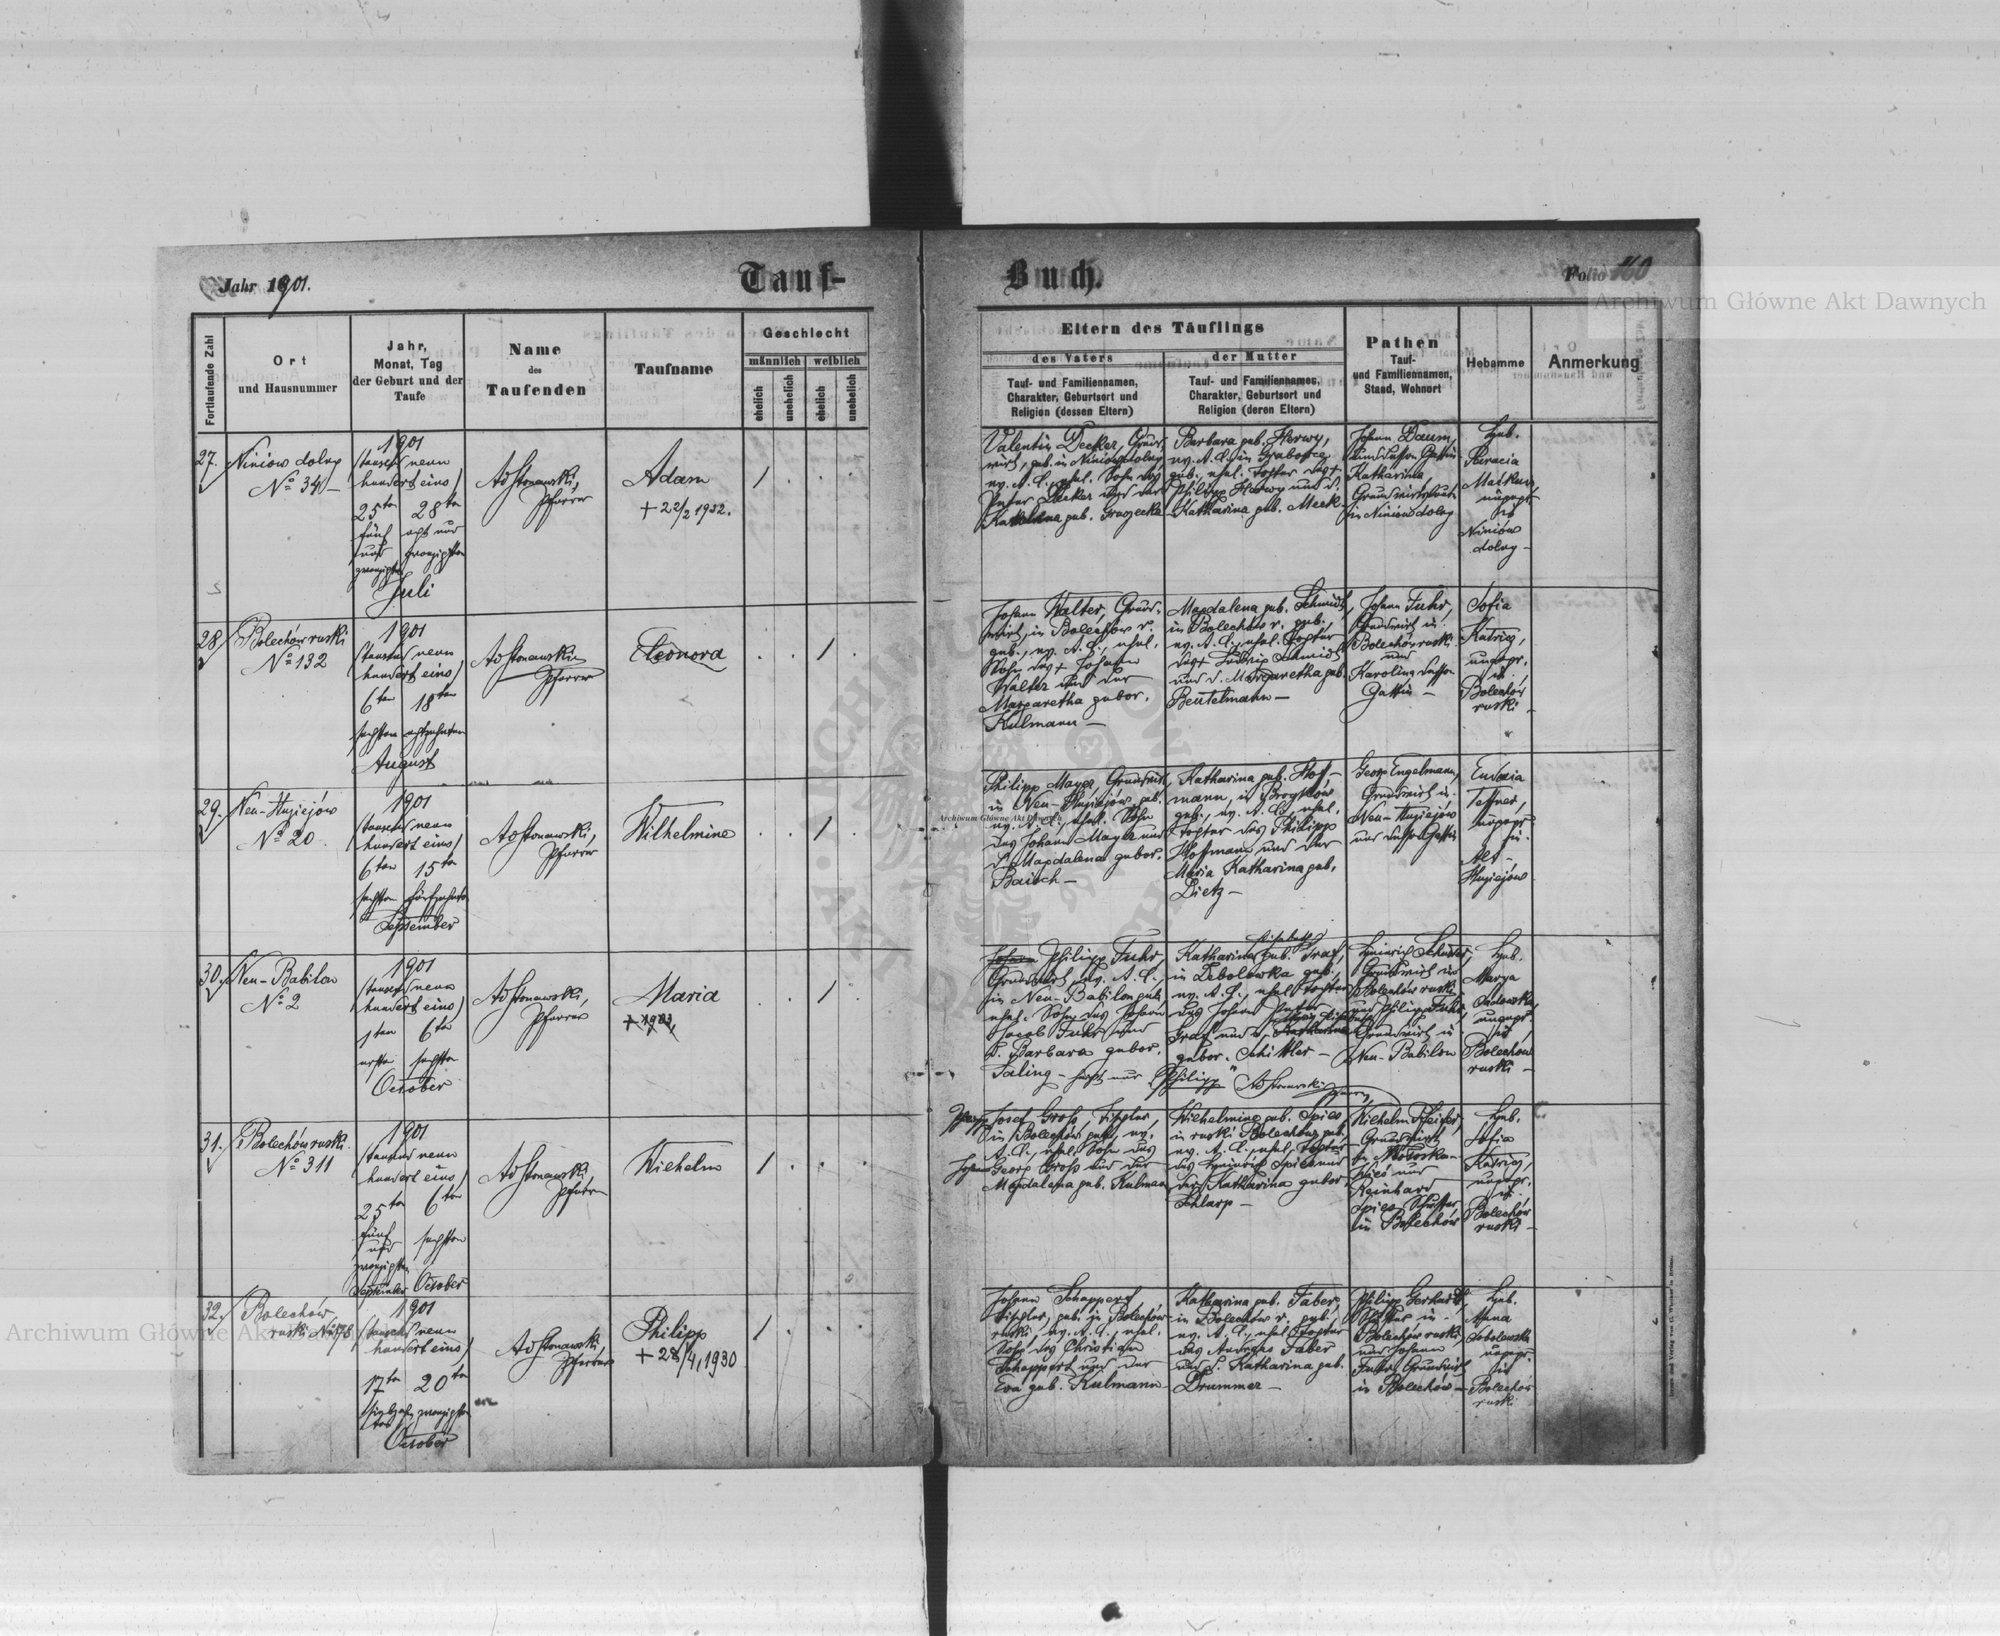 Jahr 1901.
Tauf-
Buch.
Folio 160
Archiwum Główne Akt Dawnych
Fortlaufende Zahl
Ort
und Hausnummer
Jahr,
Monat, Tag
der Geburt und der
Taufe
Name
des
Taufenden
Taufname
Geschlecht
männlich
weiblich
ehelich
unehelich
ehelich
unehelich
Eltern des Täuflings
des Vaters
Tauf- und Familiennamen,
Charakter, Geburtsort und
Religion (dessen Eltern)
der Mutter
Tauf- und Familiennamen,
Charakter, Geburtsort und
Religion (deren Eltern)
Pathen
Tauf-
und Familiennamen,
Stand, Wohnort
Hebamme
Anmerkung
27.
Niniow dolny
No 34 –
1901
(tausend neun
hundert eins)
25ten 28ten
fünf acht und
und zwanzigsten
zwanzigsten
Juli
Pfarrer
Adam
+ 22/2 1932.
1 . . .
Valentin Decker, Grund-
wirt, geb. in Niniow dolny,
ev. A. C., ehel. Sohn des
Peter Decker und der
Katharina geb.
Barbara geb. Herwy,
ev. A. C. in
geb. ehel. Tochter des +
Philipp Herwy und d.
Katharina geb. Meck –
Johann Daum,
und dessen Gattin
Katharina
in Niniow dolny
Hyb.
ungepr.
in
Niniów
dolny –
28.
Bolechów ruski
No 132
1901
(tausend neun
hundert eins)
6ten 18ten
sechsten achtzehnten
August
Pfarrer
Eleonora
. . 1 .
Johann Walter, Grund-
wirt, in Bolechów r.
geb., ev. A. C., ehel.
Sohn des + Johann
Walter und der
Margaretha gebor.
Kulmann –
Magdalena geb. Schmidt,
in Bolechów r. geb.,
ev. A. C., ehel. Tochter
des + Ludwig Schmidt
und d. Margaretha geb.
Beutelmann –
Johann Fuhr,
Grundwirt in
Bolechów ruski
und
Karolina dessen
Gattin –
Sofia
ungepr.
in
Bolechów
ruski –
29.
Neu-Huziejów
No 20.
1901
(tausend neun
hundert eins)
6ten 15ten
sechsten fünfzehnten
September
Pfarrer
Wilhelmine
. . 1 .
Philipp Mayer, Grundwirt,
in Neu-Huziejów geb.
ev. A. C., ehel. Sohn
des Johann Mayer und
d. Magdalena gebor.
Baisch –
Katharina geb. Hoff-
mann, in
geb., ev. A. C., ehel.
Tochter des Philipp
Hoffmann und der
Maria Katharina geb.
Dietz –
Georg Engelmann,
Grundwirt in
Neu-Huziejów
und dessen Gattin
ungepr.
in
Alt-
Huziejów
Archiwum Główne Akt Dawnych
30.
Neu-Babilon
No 2
1901
(tausend neun
hundert eins)
1ten 6ten
ersten sechsten
October
Pfarrer
Maria
. . 1 .
Johann Philipp Fuhr,
Grundwirt, ev. A. C.,
in Neu-Babilon geb.
ehel. Sohn des Johann
Jacob Fuhr und
d. Barbara gebor.
Faling – heißt nur "Philipp"
Pfarrer
Elisabeth
Katharina geb. Graf,
in Debolowka geb.,
ev. A. C., ehel. Tochter
des Johann Peter
Graf und d. Katharina
gebor. Schittler –
Heinrich
Grundwirt in
Bolechów ruski
und Philipp Fuhr,
Grundwirt in
Neu-Babilon
Hyb.
Marya
ungepr.
in
Bolechów
ruski –
31.
Bolechów ruski.
No 311
1901
(tausend neun
hundert eins)
25ten 6ten
fünf
und sechsten
zwanzigsten
September October
Pfarrer
Wilhelm
1 . . .
Josef Groß, Tischler,
in Bolechów geb., ev.
A. C., ehel. Sohn des
Johann Georg Groß und der
Magdalena geb. Kulmann
Wilhelmine geb. Spies
in ruski Bolechów geb.
ev. A. C., ehel. Tochter
des Heinrich Spies und
der Katharina gebor.
Schlarp –
Wilhelm Pfeifer,
Grundwirt
und
Reinhard
Spies Schuster
in Bolechów
Hyb.
Sofia
ungepr.
in
Bolechów
ruski –
32.
Bolechów
ruski No 178
1901
(tausend neun
hundert eins)
17ten 20ten
siebzehn- zwanzigsten
ten
October
Pfarrer
Philipp
+ 28/4, 1930
1 . . .
Johann Schappert
Tischler, geb. in Bolechów
ruski, ev. A. C., ehel.
Sohn des Christian
Schappert und der
Eva geb. Kulmann –
Katharina geb. Faber,
in Bolechów r. geb.,
ev. A. C., ehel. Tochter
des Andreas Faber
und d. Katharina geb.
Drummer –
Philipp Gerhardt,
in
Bolechów ruski,
und Johann
Fuhr, Grundwirt
in Bolechów –
Hyb.
Anna
Sobolewska
ungepr.
in
Bolechów
ruski
Archiwum Główne Akt Dawnych